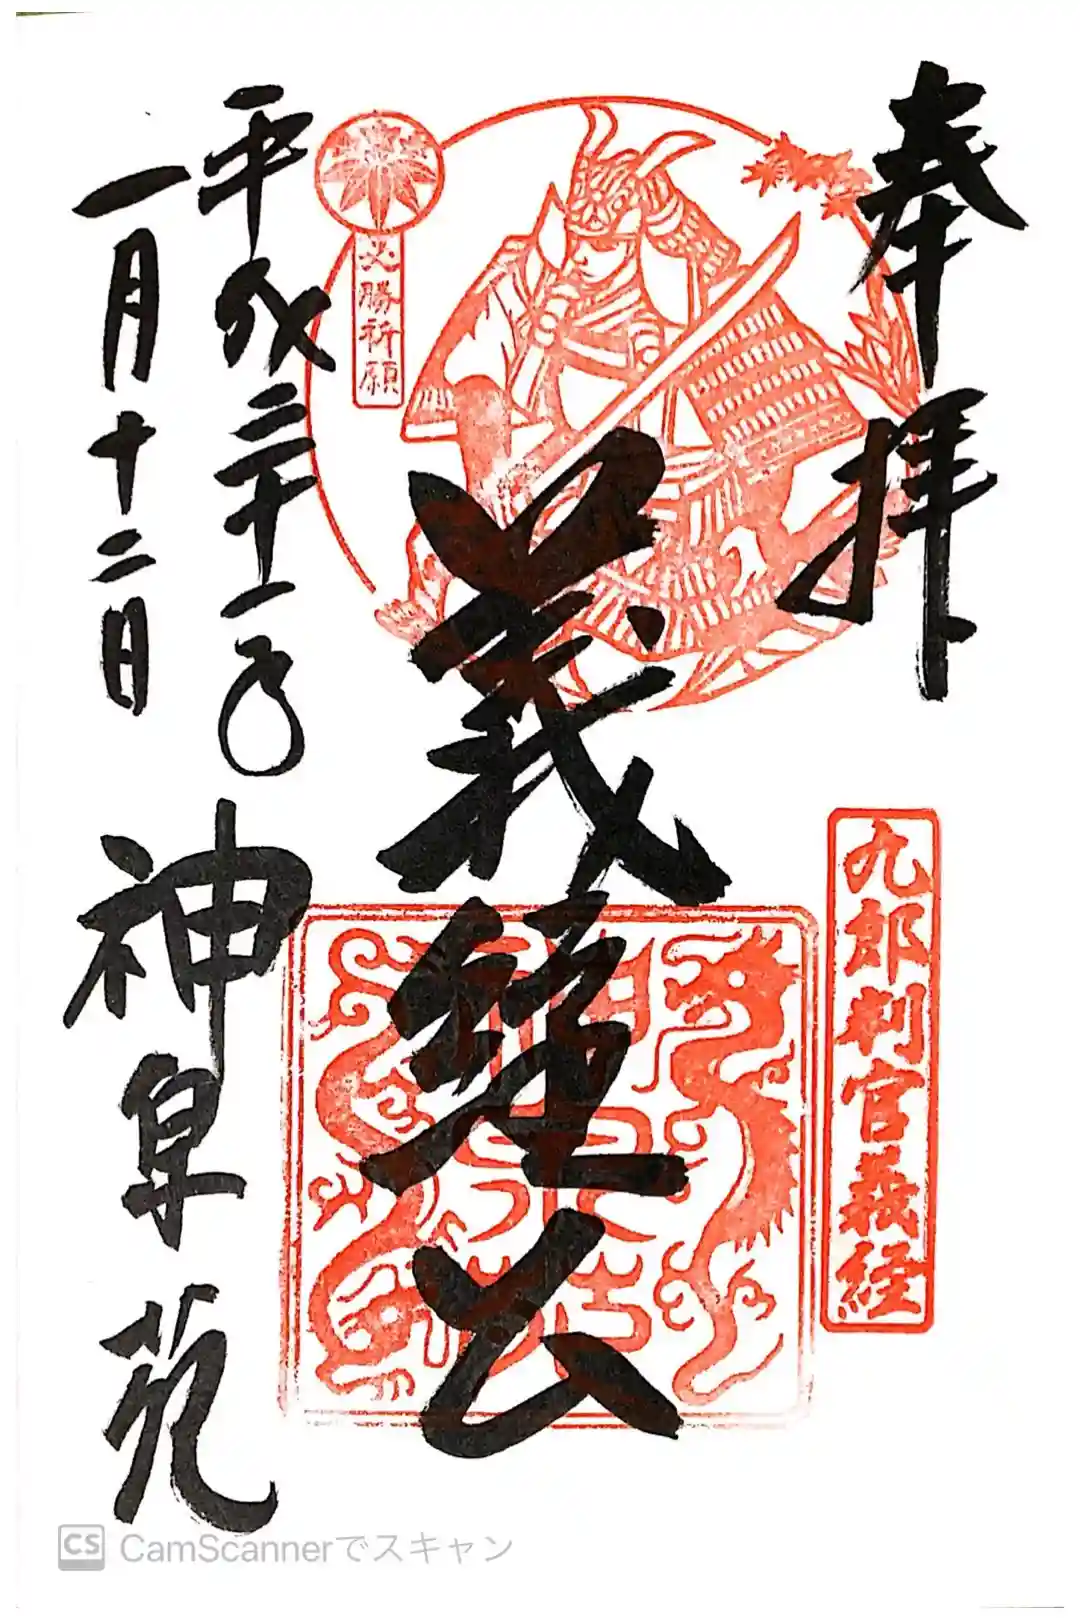 奉拝
必勝祈願
義経公
九郎判官義経
平成三十一年
一月十二日
神泉苑
CS CamScannerでスキャン